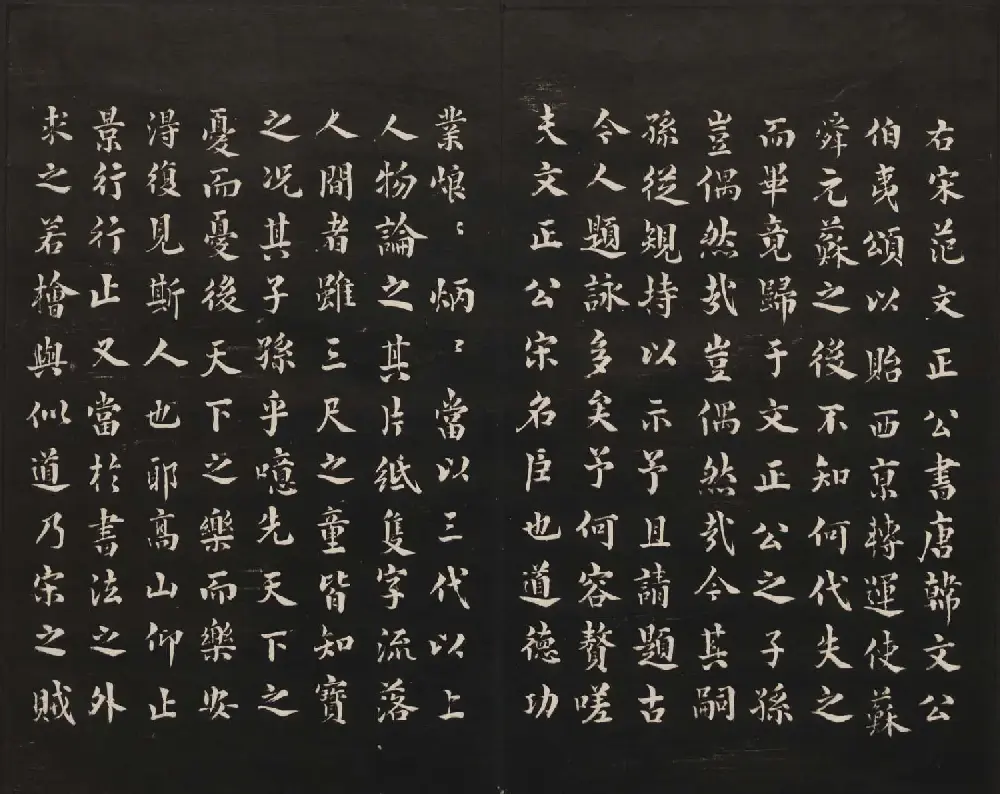 右宋范文正公書唐韓文公
伯夷頌以貽西亰轉運使蘇
舜元蘇之後不知何代失之
而畢竟歸于文正公之子孫
豈偶然哉豈偶然哉今其嗣
孫從規持以示予且請題古
今人題詠多矣予何容贅嗟
夫文正公宋名臣也道德功
業烺〻炳〻當以三代以上
人物論之其片紙隻字流落
人間者雖三尺之童皆知寶
之况其子孫乎噫先天下之
憂而憂後天下之樂而樂安
得復見斯人也耶高山仰止
景行行止又當於書法之外
求之若檜與似道乃宋之賊